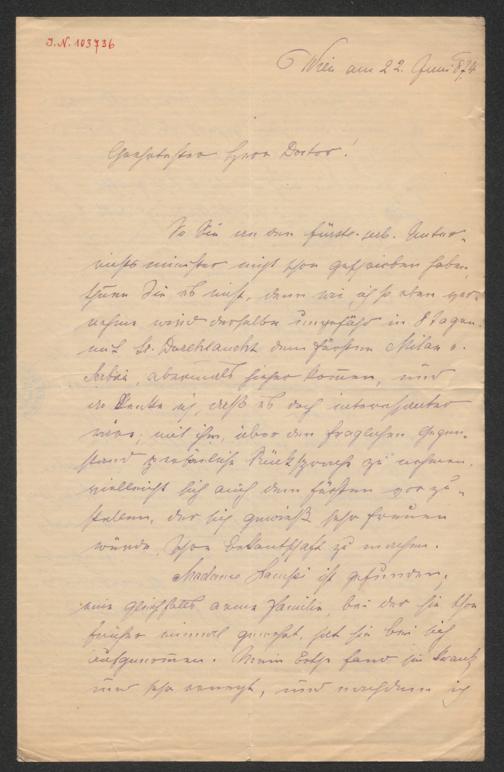 J.N. 103736
Wien am 22. Juni 874
Geehrtester Herr Doctor!
So Sie an den fürstl. serb. Unter-
richtsminister nicht schon geschrieben haben,
thuen Sie es nicht, denn wie ich so eben ver-
nehme wird derselbe ungefähr in 8 Tagen
mit Sr. Durchlaucht dem Fürsten Milan v.
Serbien, abermals hieher kommen, und
da denke ich, daß es doch interessanter
wäre, mit ihm, über den fraglichen Gegen-
stand persönliche Rücksprache zu nehmen,
vielleicht sich auch dem Fürsten vorzu-
stellen, der sich gewiß sehr freuen
würde, Ihre Bekantschaft zu machen.
Madame ist gefunden,
eine gleichfalls arme Familie, bei der sie schon
früher einmal gewohnt, hat sie bei sich
aufgenommen. Mein Bothe fand sie krank
und sehr erregt, und nachdem ich